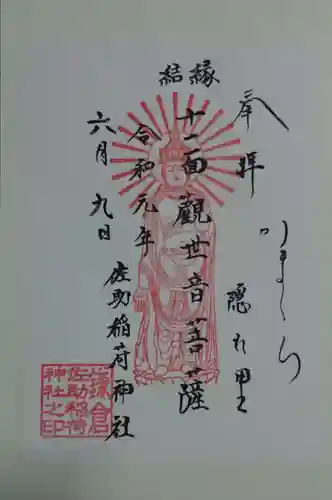 結縁
奉拝
かまくら
隠れ里
十一面觀世音菩薩
令和元年
六月九日
佐助稲荷神社
鎌倉
佐助稲荷
神社之印